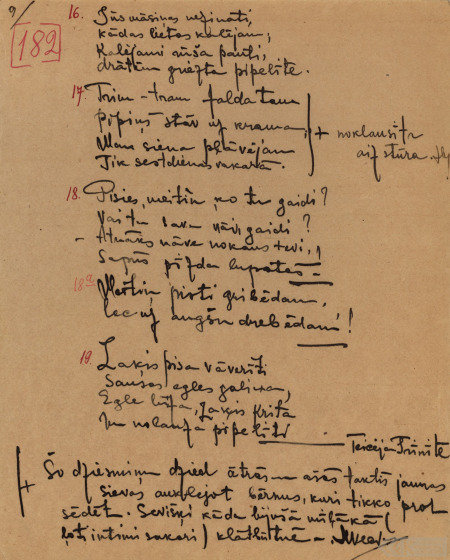 9/
182
16. Jūs māsiņas nezināti,
kādas lietas kalējam,
Kalējami rūsa pauti,
drātēm griezta pipelīte.
17. Trim-tram falda tam
Pipiņš stāv uz krama,
Man siena pļāvējam
Tik sestdienas vakarā.
+ noklausīts aiz stūra.
18. Pisies, meitiņ, ko tu gaidi?
Vai tu savu nāvi gaidi?
- Atnāks nāve nokaus tevi,
Sapūs pīzda lupatās –
18a Meitiņ pisti gribēdam,
lec uz augšu drebēdam!
19. Zaķis pisa vāverīti
Sausas egles galiņā,
Egle lūza, Zaķis krita
Un nolauza pipelīti
Teicēja Trīnīte
+ Šo dziesmiņu dzied ātrā un asā tautā jaunas
sievas auklējot bērnus, kuri tikko prot
sēdēt. Sevišķi kāda bijušā mīļākā (
ļoti intīmi sakari) klātbūtnē.